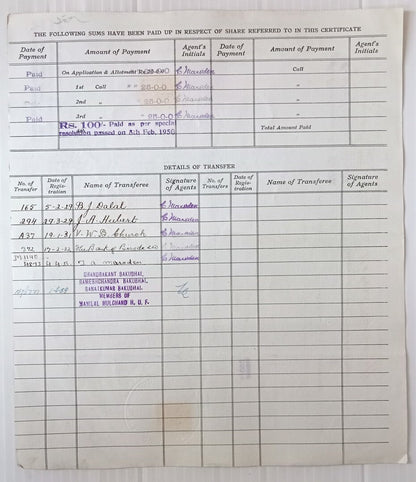 THE FOLLOWING SUMS HAVE BEEN PAID UP IN RESPECT OF SHARE REFERRED TO IN THIS CERTIFICATE
Date of Payment Amount of Payment Agent's Initials Date of Payment Amount of Payment Agent's Initials
Paid On Application & Allotment Rs 25-0-0 C Marsden Call
Paid 1st Call " 25-0-0 C Marsden "
2nd " 25-0-0 C Marsden "
Paid 3rd " 25-0-0 C Marsden "
Rs. 100/- Paid as per special Total Amount Paid
resolution passed on 8th Feb, 1930
DETAILS OF TRANSFER
No. of Transfer Date of Registration Name of Transferee Signature of Agents No. of Transfers Date of Registration Name of Transferee Signature of Agents
165 5-2-29 B J Dalal C Marsden
294 27-3-29 J. A. Hubert C Marsden
A37 19-1-31 V. W. D. Church C Marsden
772 The Bank of Baroda C Marsden
Marsden C Marsden
CHANDRAKANT BAKUBHAI,
RAMESHCHANDRA BAKUBHAI,
BAKUBHAI,
MEMBERS OF
MANILAL MULCHAND H. U. F.